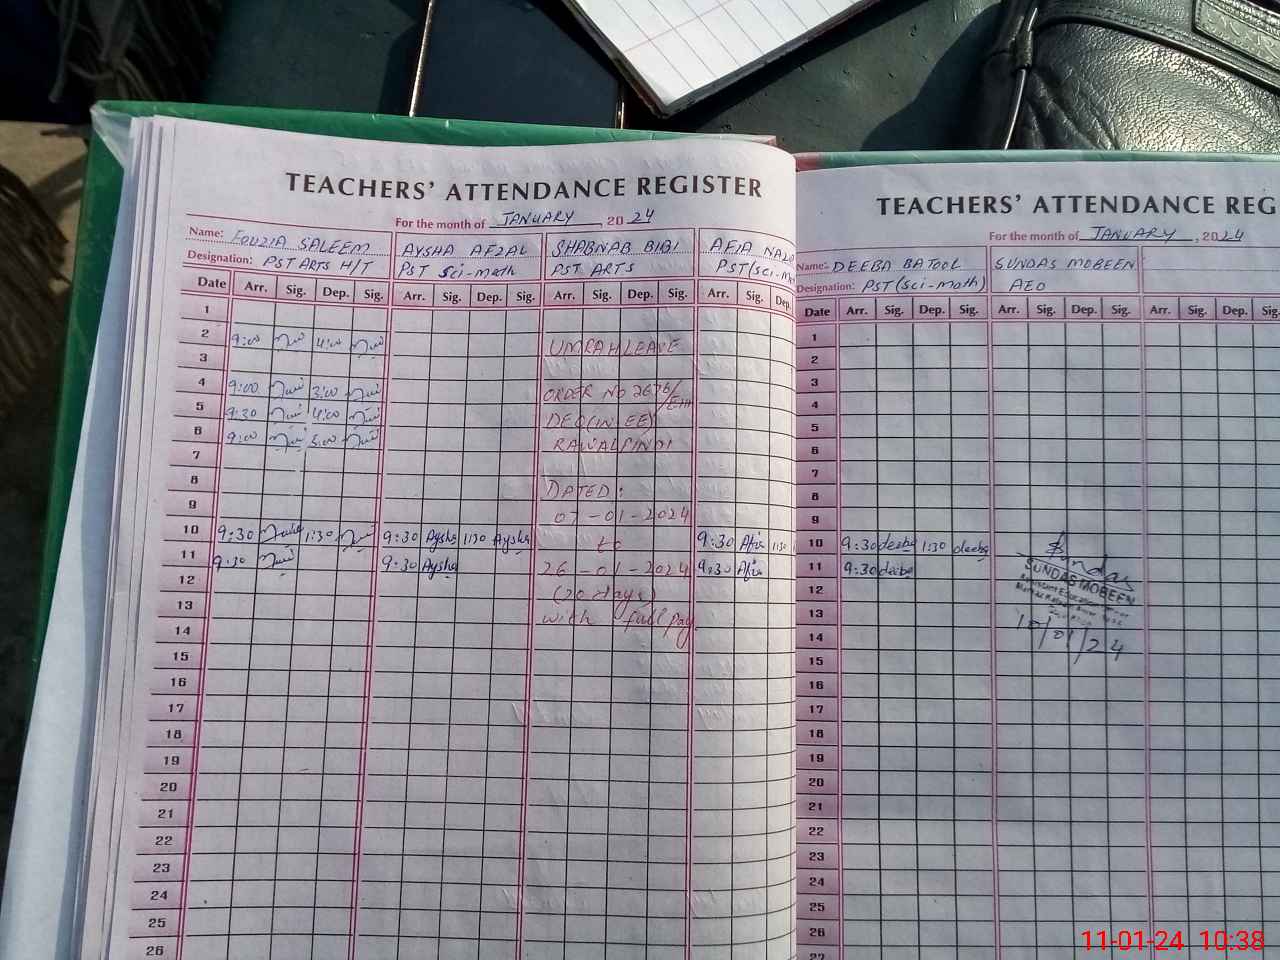 TEACHERS' ATTENDANCE REGISTER
For the month of JANUARY, 2024
Name: FOUZIA SALEEM AYSHA AFZAL SHABNAB BIBI AFIA
Designation: PST ARTS H/T PST Sci-math PST ARTS PST (sci-
Date Arr. Sig. Dep. Sig. Arr. Sig. Dep. Sig. Arr. Sig. Dep. Sig. Arr. Sig.
1
2 9:00 4:00 UMRAH LEAVE
3
4 9:00 3:00 ORDER NO 2676/
5 9:30 4:00 DEO(W-EE)
6 9:00 RAWALPINDI
7
8 DATED:
9 07-01-2024
10 9:30 1:30 9:30 Aysha 1:30 Aysha to 9:30 Afia 1:30
11 9:30 9:30 Aysha 26-01-2024 9:30 Afia
12 (20 days)
13 with full pay
14
15
16
17
18
19
20
21
22
23
24
25
26
TEACHERS' ATTENDANCE REG
For the month of JANUARY, 2024
Name:- DEEBA BATOOL SUNDAS MOBEEN
Designation: PST (sci-math) AEO
Date Arr. Sig. Dep. Sig. Arr. Sig. Dep. Sig. Arr. Sig. Dep. Sig.
1
2
3
4
5
6
7
8
9
10 9:30 deeba 1:30 deeba Sundas
11 9:30 deeba SUNDAS MOBEEN
12 Assistant Education Officer
13
14 10/01/24
15
16
17
18
19
20
21
22
23
24
25
26
27
11-01-24 10:38